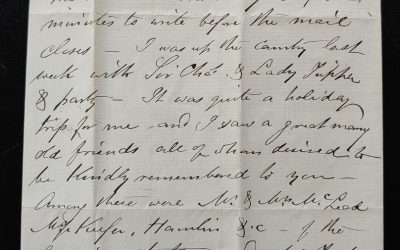 minutes to write before the mail
closes – I was up the country last
week with Sir Chas. & Lady Tupper
& party – It was quite a holiday
trip for me. and I saw a great many
old friends all of whom desired to
be kindly remembered to you –
Among these were Mr & Mrs McLeod
Keefer, Hamlin &c – of the